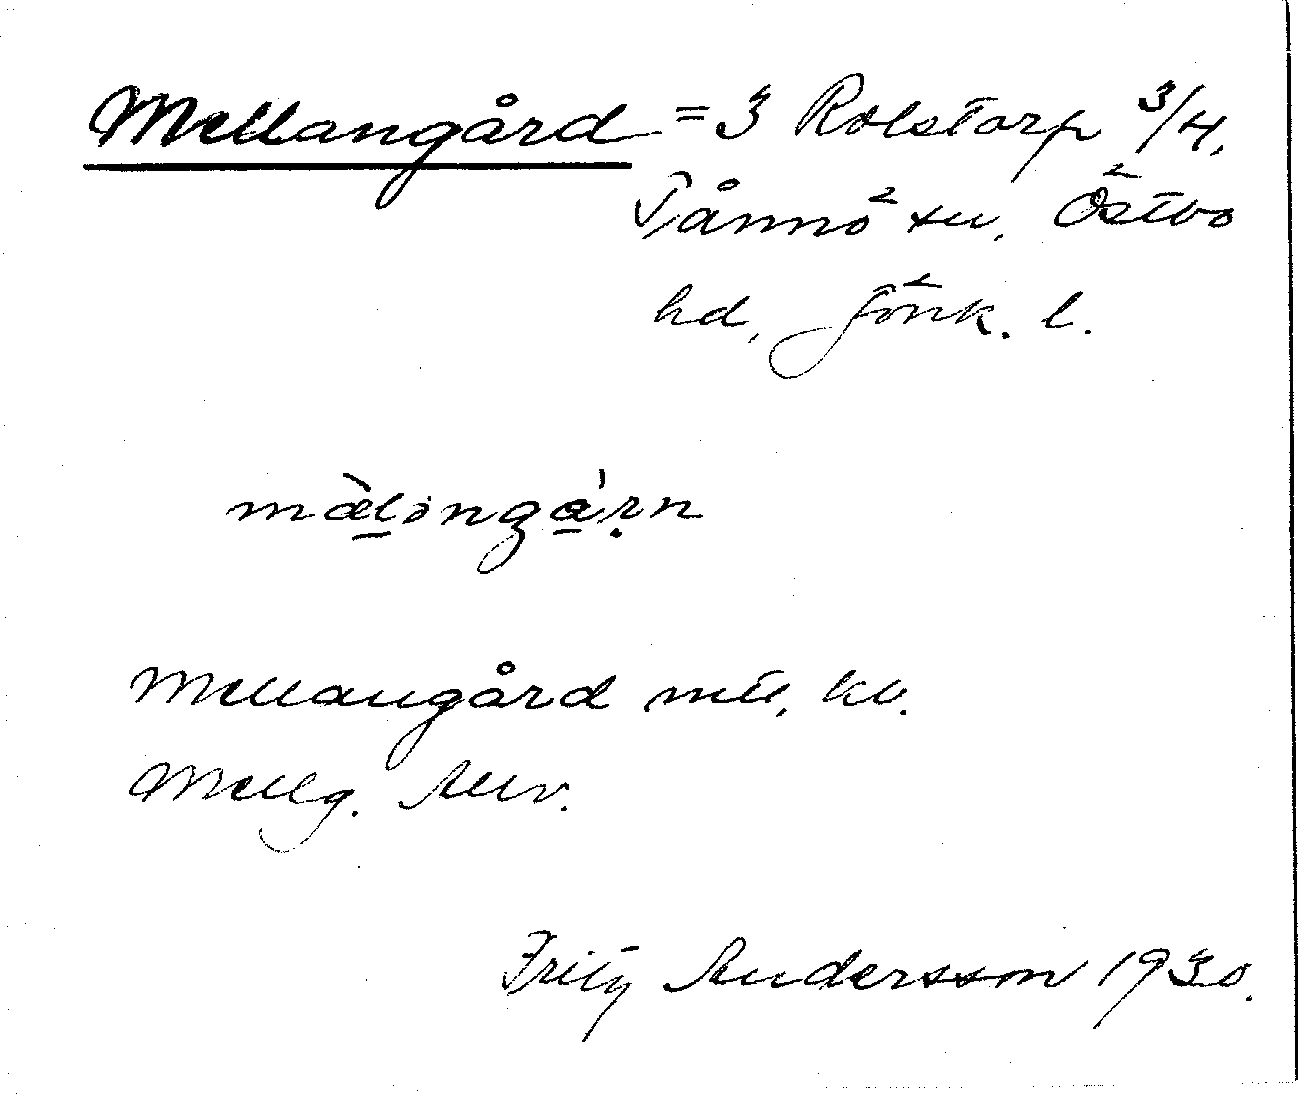 Mellangård = 3 Rolstorp 3/4,
Tånnö sn, Östbo
hd, Jönk. l.
mæ̀lingárn
Mellangård mtl. kb.
Mellg.
Fritz Andersson 1930.